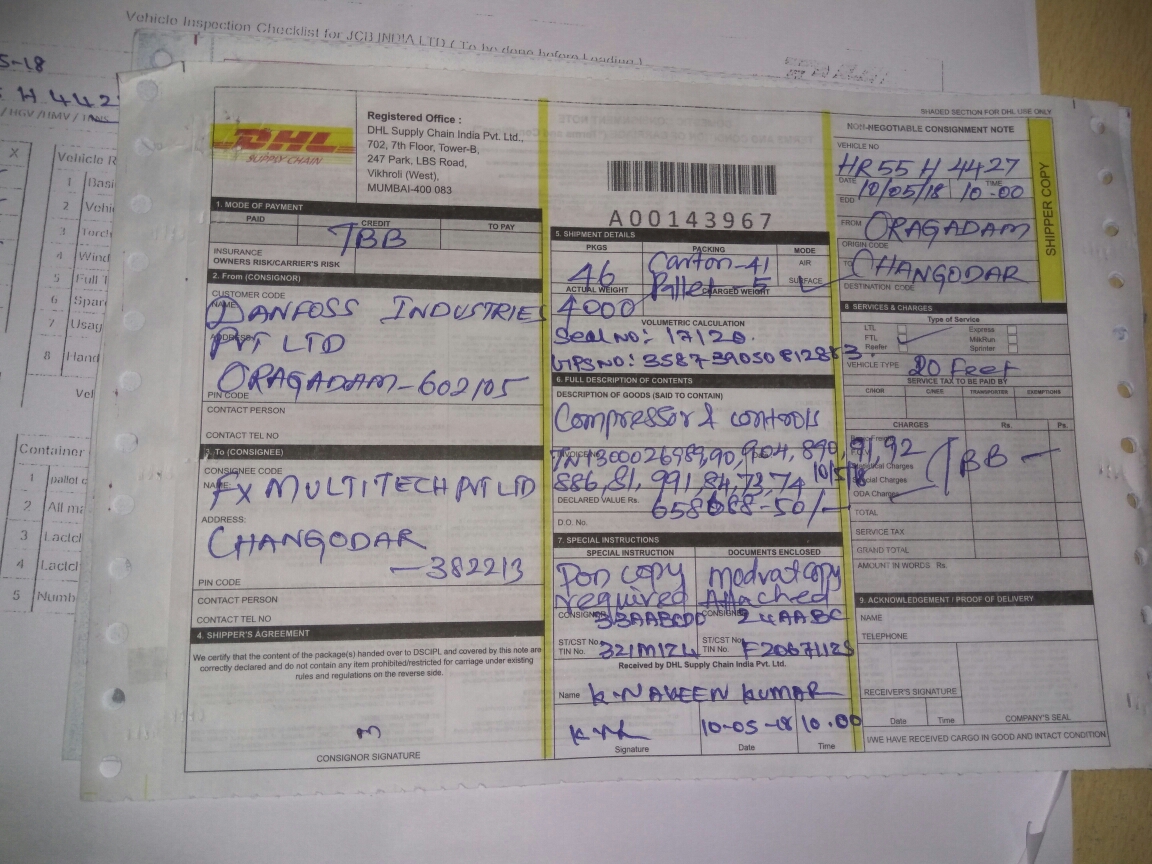 Vehicle Inspection Checklist for JCB INDIA LTD ( To be done before Loading )
5-18
H 442
/ HGV / HMV /
X
Vehicle R
1 Basi
2 Vehi
3 Torch
4 Wind
5 Full T
6 Spar
7 Usag
8 Hand
Vel
Container
1 pallet c
2 All ma
3 Lactcl
4 Lactcl
5 Numb
SHADED SECTION FOR DHL USE ONLY
DHL
SUPPLY CHAIN
Registered Office :
DHL Supply Chain India Pvt. Ltd.,
702, 7th Floor, Tower-B,
247 Park, LBS Road,
Vikhroli (West),
MUMBAI-400 083
A00143967
NON-NEGOTIABLE CONSIGNMENT NOTE
SHIPPER COPY
VEHICLE NO
HR 55 H 4427
DATE 10/05/18 TIME 10-00
EDD
FROM ORAGADAM
ORIGIN CODE
TO CHANGODAR
DESTINATION CODE
1. MODE OF PAYMENT
PAID CREDIT TO PAY
TBB
INSURANCE
OWNERS RISK/CARRIER'S RISK
2. From (CONSIGNOR)
CUSTOMER CODE
NAME: DANFOSS INDUSTRIES
ADDRESS: PVT LTD
ORAGADAM-602105
PIN CODE
CONTACT PERSON
CONTACT TEL NO
3. To (CONSIGNEE)
CONSIGNEE CODE
NAME: FX MULTITECH PVT LTD
ADDRESS:
CHANGODAR
-382213
PIN CODE
CONTACT PERSON
CONTACT TEL NO
4. SHIPPER'S AGREEMENT
We certify that the content of the package(s) handed over to DSCIPL and covered by this note are
correctly declared and do not contain any item prohibited/restricted for carriage under existing
rules and regulations on the reverse side.
CONSIGNOR SIGNATURE
5. SHIPMENT DETAILS
PKGS PACKING MODE
46 Carton-41 AIR
Pallet-5 SURFACE
ACTUAL WEIGHT CHARGED WEIGHT
4000
VOLUMETRIC CALCULATION
Seal No: 17120.
GPS NO: 358739050812853.
6. FULL DESCRIPTION OF CONTENTS
DESCRIPTION OF GOODS (SAID TO CONTAIN)
Compressor & controls
INVOICE NO.
886,81, 991,84,73,74 10/5/18
DECLARED VALUE Rs.
D.O. No.
7. SPECIAL INSTRUCTIONS
SPECIAL INSTRUCTION DOCUMENTS ENCLOSED
Pod copy modvat copy
required Attached
CONSIGNOR 33AABCDD CONSIGNEE 24AABC
ST/CST No. ST/CST No.
TIN No. 321M1ZL TIN No. F2067112S
Received by DHL Supply Chain India Pvt. Ltd.
Name K. NAVEEN KUMAR
10-05-18 10.00
Signature Date Time
8 SERVICES & CHARGES
Type of Service
LTL Express
FTL MilkRun
Reefer Sprinter
VEHICLE TYPE 20 Feet
SERVICE TAX TO BE PAID BY
C/NOR C/NEE TRANSPORTER EXEMPTIONS
CHARGES Rs. Ps.
Statistical Charges
Special Charges
TBB
ODA Charges
TOTAL
SERVICE TAX
GRAND TOTAL
AMOUNT IN WORDS Rs.
9. ACKNOWLEDGEMENT / PROOF OF DELIVERY
NAME
TELEPHONE
RECEIVER'S SIGNATURE
Date Time COMPANY'S SEAL
I/WE HAVE RECEIVED CARGO IN GOOD AND INTACT CONDITION